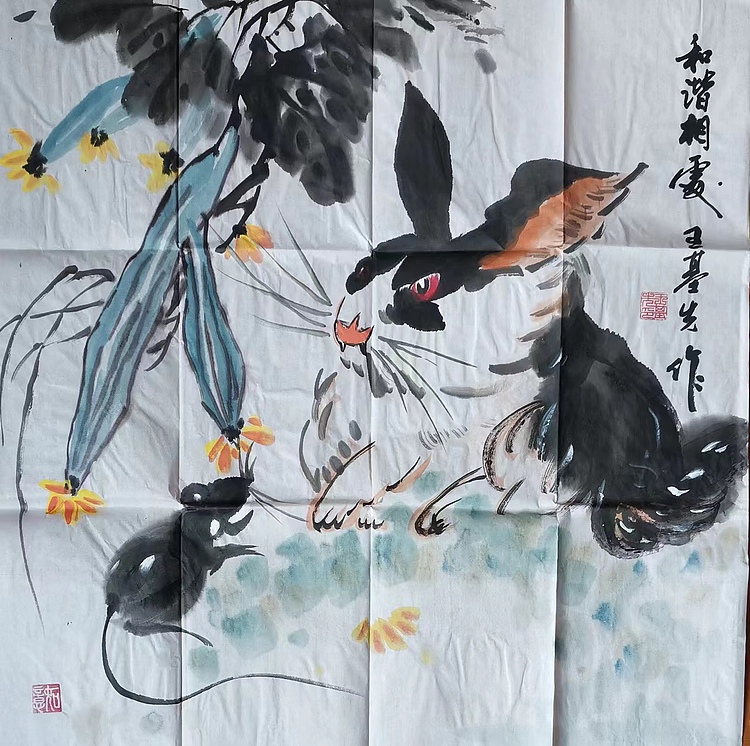 和谐相处
王基先作